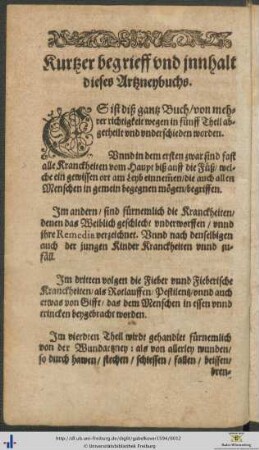 Kurtzer begrieff vnd innhalt
dieses Artzneybuchs.
ES ist diß gantz Buch / von meh-
rer richtigkeit wegen in fünff Theil ab-
getheilt vnd vnderschieden worden.
Vnnd in dem ersten zwar sind fast
alle Kranckheiten vom Haupt biß auff die Füß / wel-
che ein gewissen ort am Leyb einnemen / die auch allen
Menschen in gemein begegnen mögen / begriffen.
Im andern / sind fürnemlich die Kranckheiten /
denen das Weiblich geschlecht vnderworffen / vnnd
ihre Remedia verzeichnet. Vnnd nach derselbigen
auch der jungen Kinder Kranckheiten vnnd zu-
fäll.
Im dritten volgen die Fieber vnnd Fieberische
Kranckheiten / als Rotlauffen / Pestilentz / vnnd auch
etwas von Gifft / das dem Menschen in essen vnnd
trincken beygebracht worden.
Im vierdten Theil wirdt gehandlet fürnemlich
von der Wundartzney: als von allerley wunden /
so durch hawen / stechen / schiessen / fallen / beissen /
bren-
http://dl.ub.uni-freiburg.de/diglit/gabelkover1594/0012
© Universitätsbibliothek Freiburg